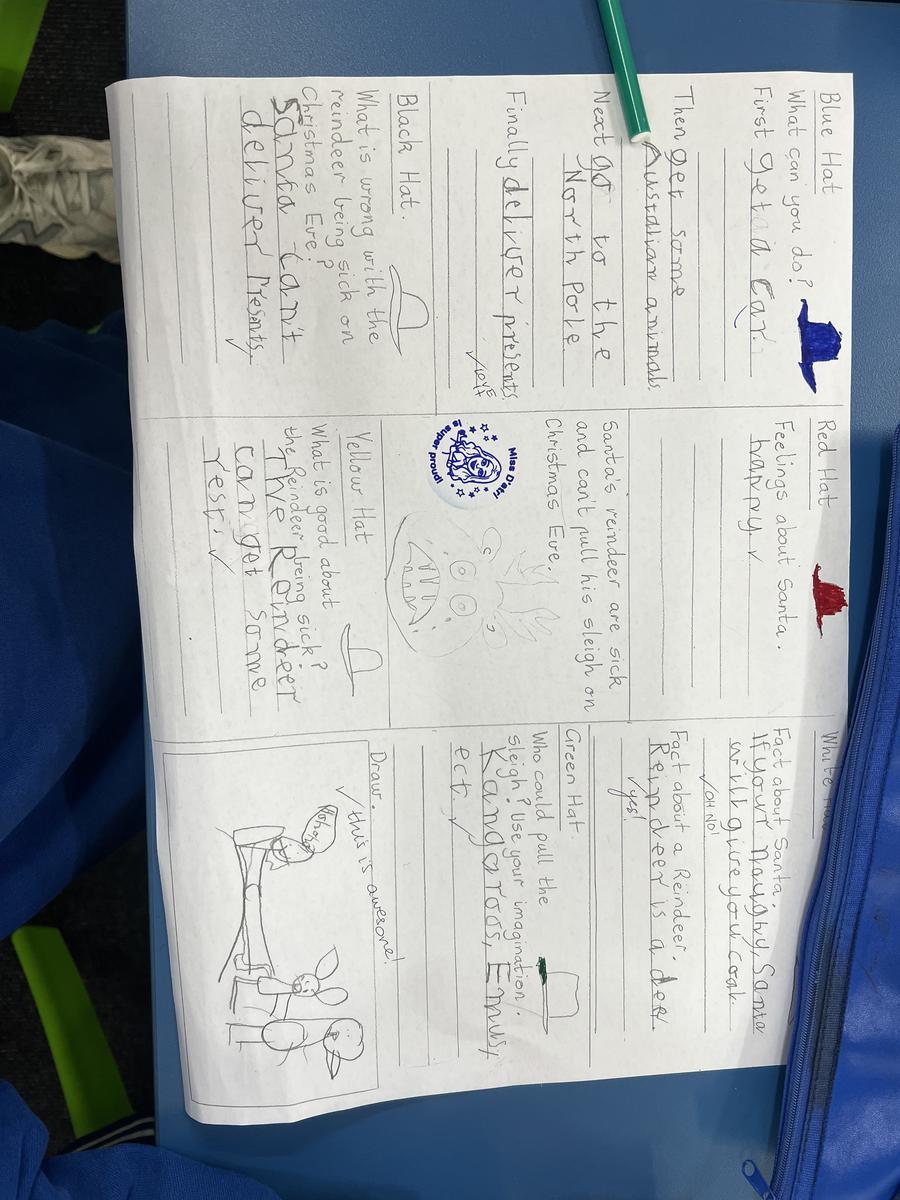 Blue Hat
What can you do?
First get a a car.
Then get some
Australian animals.
Next go to the
North Pole
Finally deliver presents.
✓ LOVE
it
Red Hat
Feelings about Santa.
happy. ✓
White
Fact about Santa.
If your naughy, Santa
will give you coal.
✓ OH NO!
Fact about a Reindeer.
Reindeer is a deer.
✓ yes!
Santa's reindeer are sick
and can't pull his sleigh on
Christmas Eve.
Miss D'Atri
is super proud!
Green Hat
Who could pull the
sleigh? Use your imagination.
Kangaroos, Emus,
ect. ✓
Black Hat.
What is wrong with the
reindeer being sick on
Christmas Eve?
Santa can't
deliver Presents. ✓
Yellow Hat
What is good about
the Reindeer being sick?
The Reindeer
can get some
rest. ✓
Draw.
✓ this is awesome!